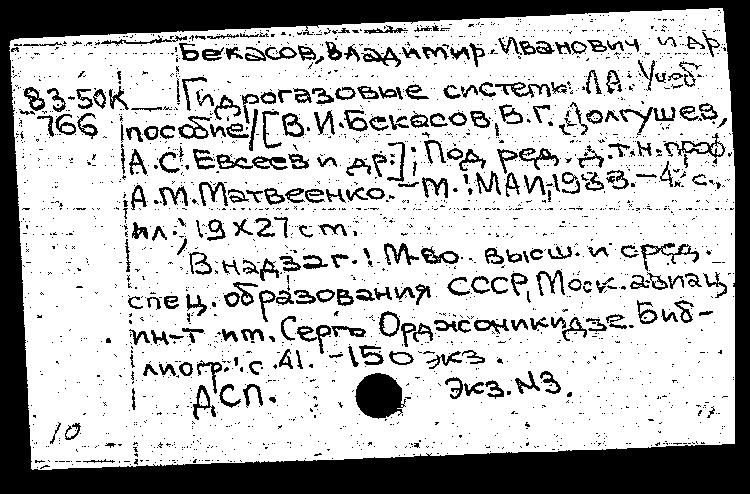 Бекасов, Владимир Иванович и др.
83-50К Гидрогазовые системы ЛА: Учеб.
766 пособие / [В.И. Бекасов, В.Г. Долгушев,
А.С. Евсеев и др.]; Под ред. д.т.н. проф.
А.М. Матвеенко. - М.: МАИ, 1983. - 4 с.,
ил.; 19 х 27 cm.
В надзаг.: М-во высш. и сред.
спец. образования СССР, Моск. авиац.
ин-т им. Серго Орджоникидзе. Биб-
лиогр.: с. 41. - 150 экз.
ДСП. Экз. №3.
10